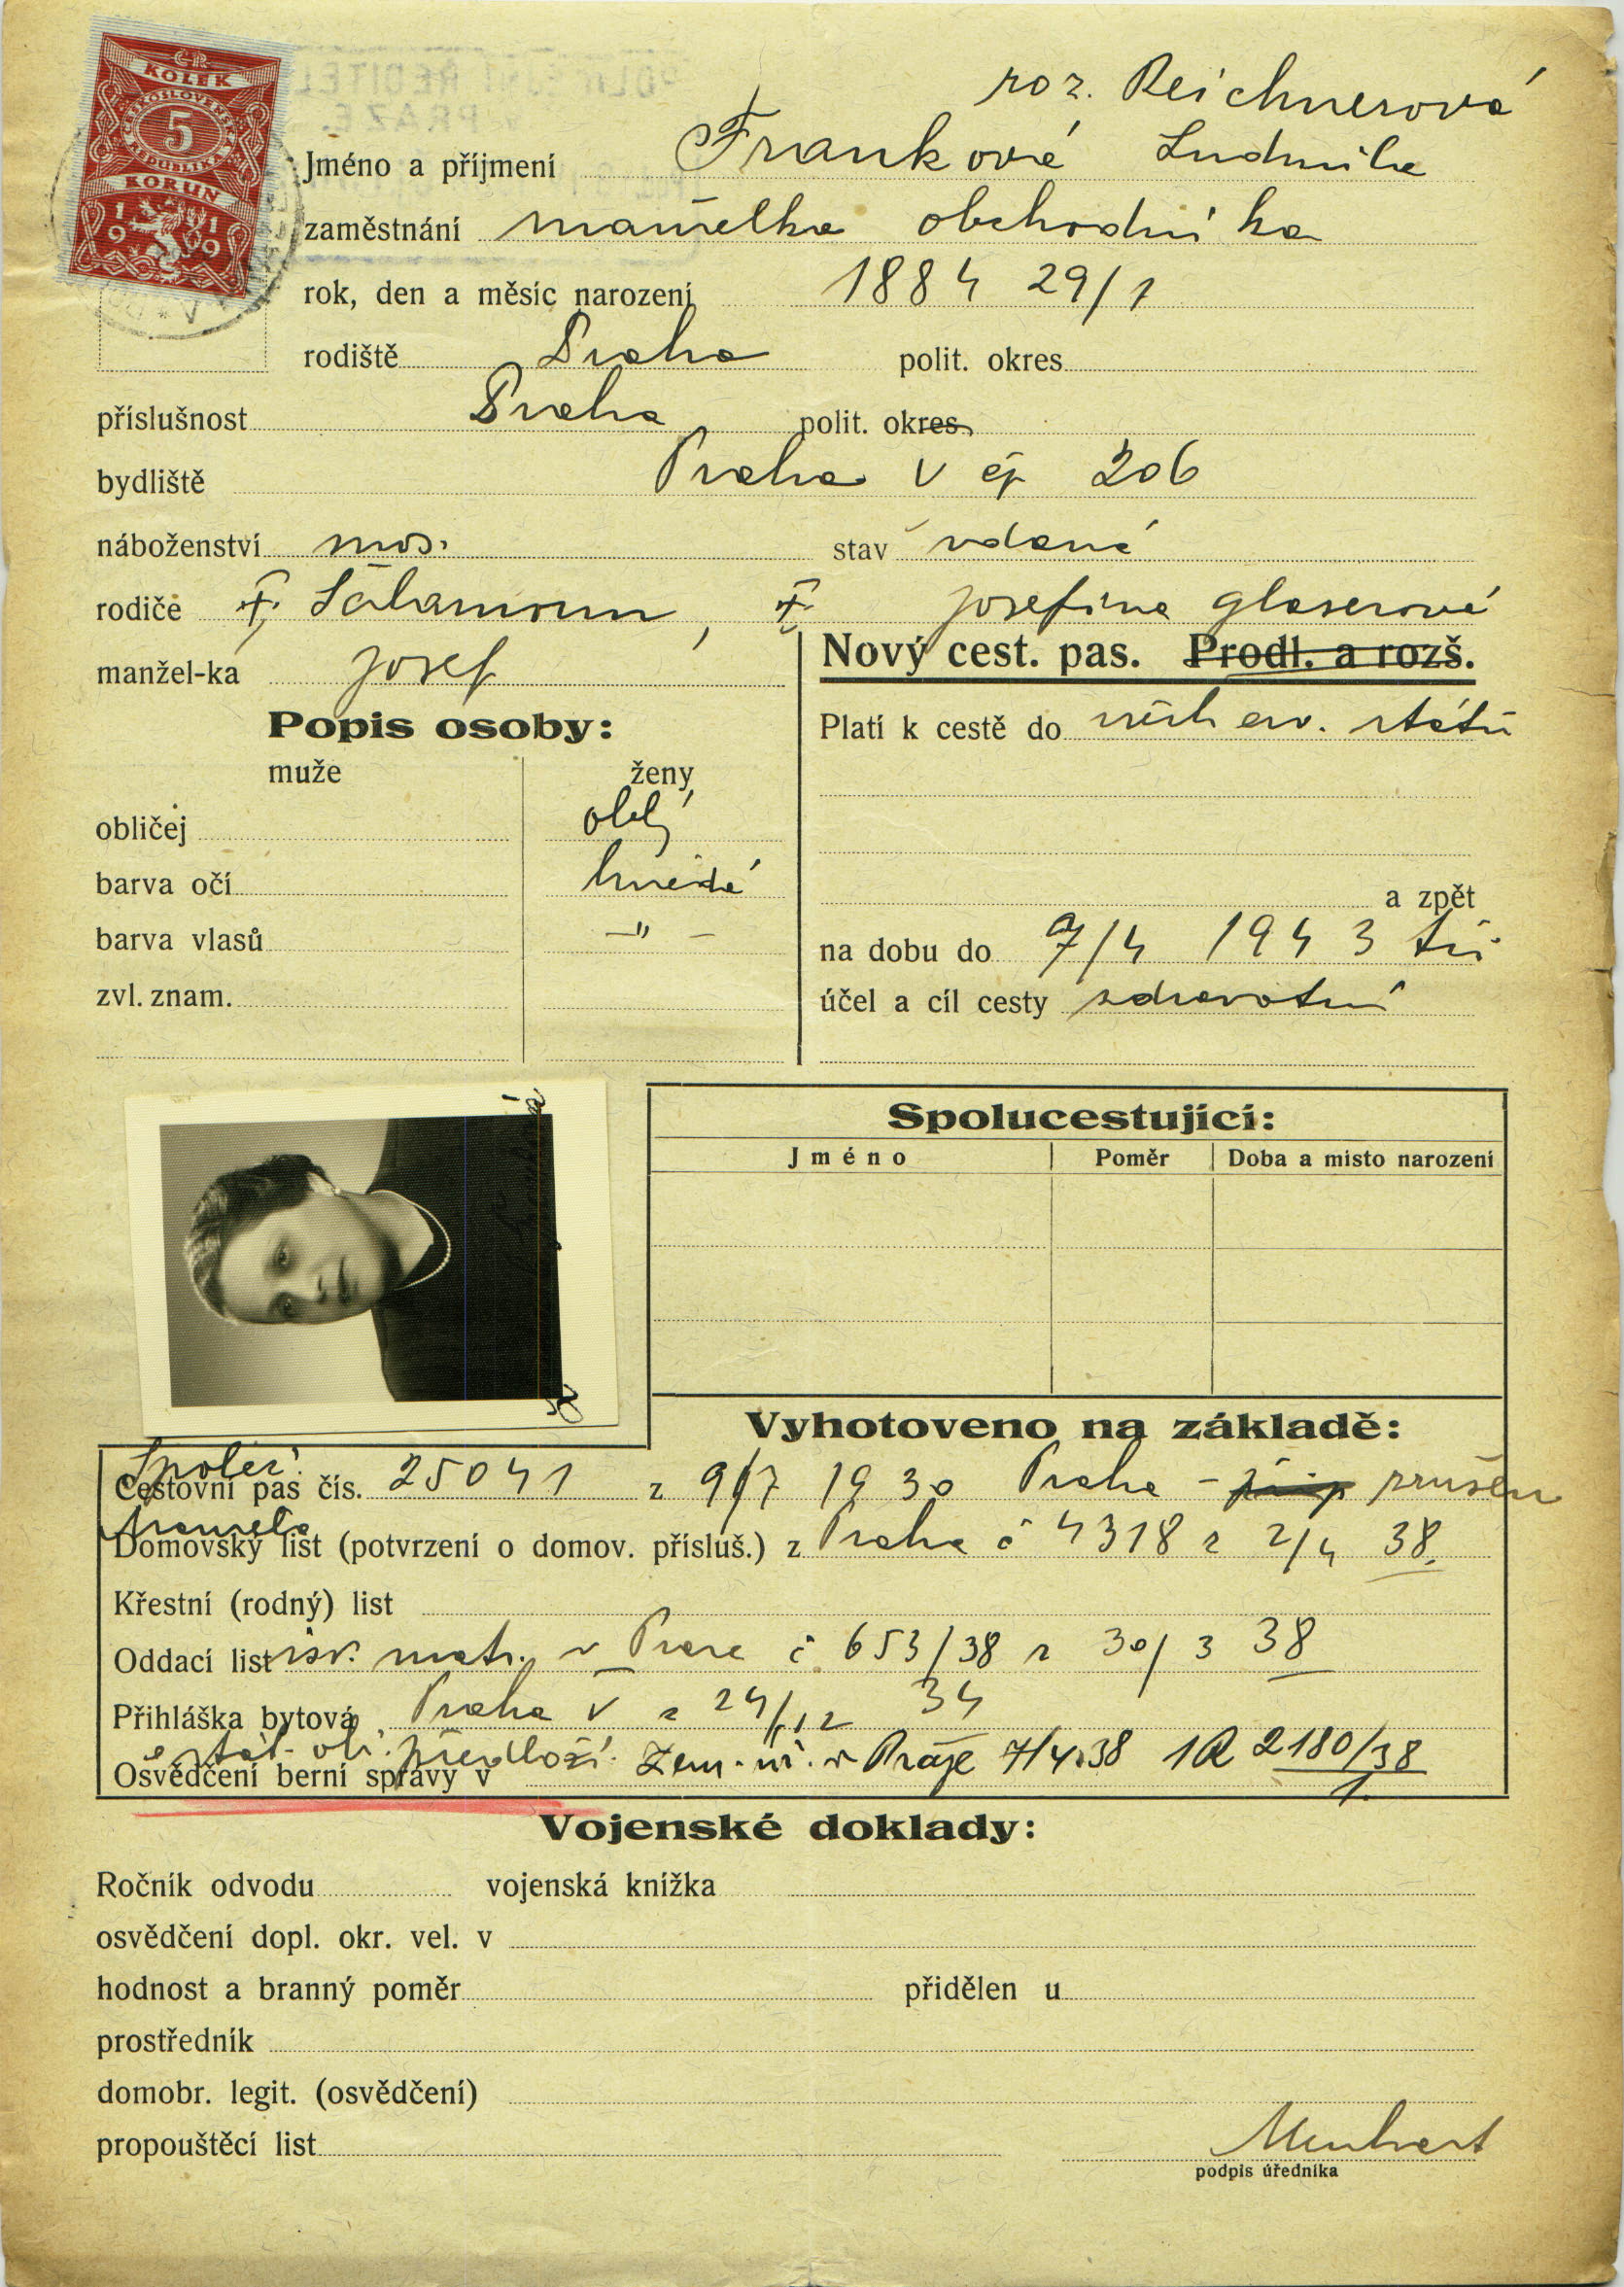 ČR
KOLEK
ČESKOSLOVENSKÁ
5
REPUBLIKA
KORUN
1919
roz. Reichnerová
Jméno a příjmení Franková Ludmila
zaměstnání manželka obchodníka
rok, den a měsíc narození 1884 29/1
rodiště Praha polit. okres
příslušnost Praha polit. okres
bydliště Praha V čp 206
náboženství mos. stav vdaná
rodiče Šalamoun, Josefina Glaserová
manžel-ka Josef
Nový cest. pas. Prodl. a rozš.
Popis osoby:
Platí k cestě do všech ev. států
muže ženy
obličej oblý
barva očí hnědé
a zpět
barva vlasů —"—
na dobu do 7/4 1943
zvl. znam.
účel a cíl cesty zdravotní
Spolucestující:
Jméno Poměr Doba a místo narození
Vyhotoveno na základě:
Společ.
Cestovní pas čís. 25041 z 9/7 1930 Praha - zrušen
Domovský list (potvrzení o domov. přísluš.) z Praha č 4318 z 2/4 38.
Křestní (rodný) list
Oddací list isr. matr. v Praze č. 653/38 z 30/3 38
Přihláška bytová Praha V z 24/12 34
stát. obč. předloží. Zem. úř. v Praze 7/4.38 1R 2180/38
Osvědčení berní správy v
Vojenské doklady:
Ročník odvodu vojenská knížka
osvědčení dopl. okr. vel. v
hodnost a branný poměr přidělen u
prostředník
domobr. legit. (osvědčení)
propouštěcí list
podpis úředníka